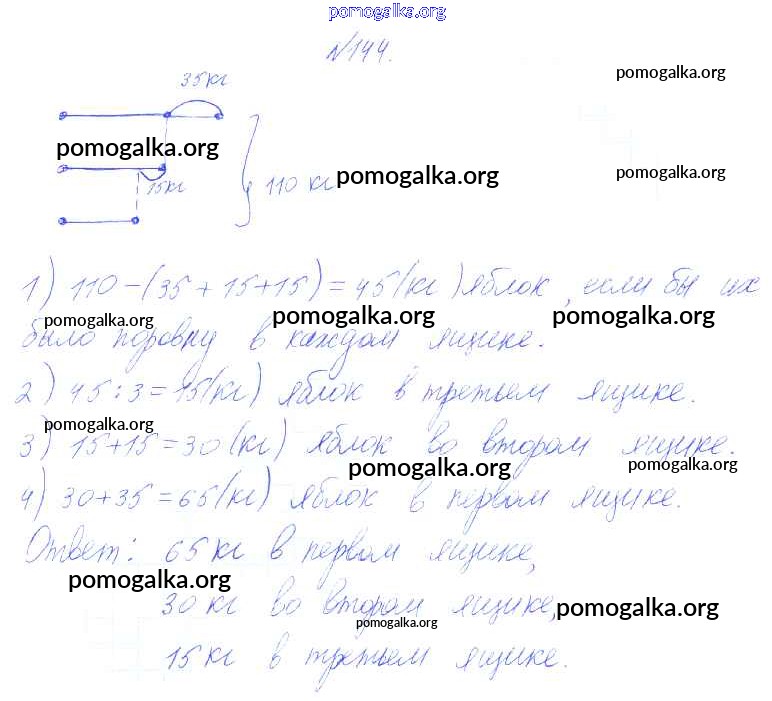 pomogalka.org
№144.
pomogalka.org
35кг
pomogalka.org
pomogalka.org
15кг
110 кг
pomogalka.org
pomogalka.org
1) 110-(35+15+15)=45(кг) яблок, если бы их
pomogalka.org
pomogalka.org
pomogalka.org
было поровну в каждом ящике.
2) 45:3=15(кг) яблок в третьем ящике.
pomogalka.org
3) 15+15=30(кг) яблок во втором ящике.
pomogalka.org
pomogalka.org
4) 30+35=65(кг) яблок в первом ящике.
Ответ: 65кг в первом ящике,
pomogalka.org
30кг во втором ящике,
pomogalka.org
pomogalka.org
15кг в третьем ящике.